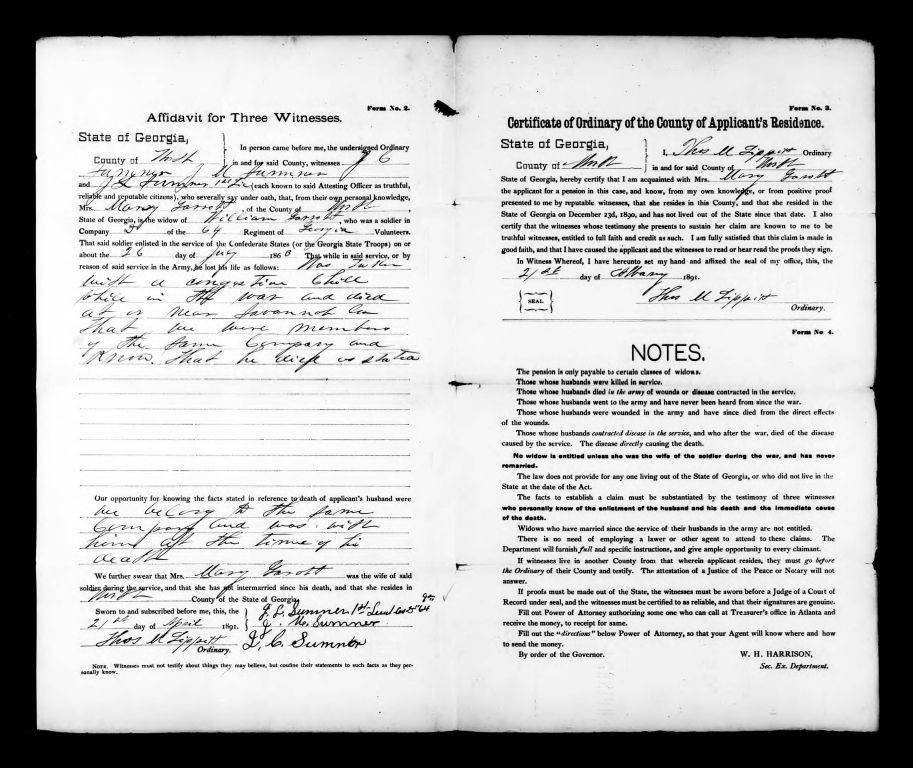 Form No. 2.
Affidavit for Three Witnesses.
State of Georgia,
County of Worth
In person came before me, the undersigned Ordinary
in and for said County, witnesses J C
Sumner J M Sumner
and J L Sumner 1st Lie (each known to said Attesting Officer as truthful,
reliable and reputable citizens), who severally say under oath, that, from their own personal knowledge,
Mrs. Mary , of the County of Worth
State of Georgia, is the widow of William , who was a soldier in
Company of the 64 Regiment of Georgia Volunteers.
That said soldier enlisted in the service of the Confederate States (or the Georgia State Troops) on or
about the 26 day of July 1863 That while in said service, or by
reason of said service in the Army, he lost his life as follows: Was taken
with a congestion Chill
while in the war and died
at or near Savannah Ga
that we were members
of the same Company and
Know that he died as stated
Our opportunity for knowing the facts stated in reference to death of applicant's husband were
we belong to the same
Company and was with
him at the time of his
death
We further swear that Mrs. Mary was the wife of said
soldier during the service, and that she has not intermarried since his death, and that she resides in
Worth County of the State of Georgia
Sworn to and subscribed before me, this, the
21st day of April 1891.
Thos M Tippitt
Ordinary.
J L Sumner 1st Lieut Co 64 Ga
J. M. Sumner
J. C Sumner
NOTE. Witnesses must not testify about things they may believe, but confine their statements to such facts as they per-
sonally know.
Form No. 3.
Certificate of Ordinary of the County of Applicant's Residence.
State of Georgia,
County of Worth
I, Thos M Tippitt Ordinary
in and for said County of Worth
State of Georgia, hereby certify that I am acquainted with Mrs. Mary
the applicant for a pension in this case, and know, from my own knowledge, or from positive proof
presented to me by reputable witnesses, that she resides in this County, and that she resided in the
State of Georgia on December 23d, 1890, and has not lived out of the State since that date. I also
certify that the witnesses whose testimony she presents to sustain her claim are known to me to be
truthful witnesses, entitled to full faith and credit as such. I am fully satisfied that this claim is made in
good faith, and that I have caused the applicant and the witnesses to read or hear read the proofs they sign.
In Witness Whereof, I have hereunto set my hand and affixed the seal of my office, this, the
21st day of Albany 1891.
SEAL
Thos M Tippitt
Ordinary.
Form No 4.
NOTES.
The pension is only payable to certain classes of widows.
Those whose husbands were killed in service.
Those whose husbands died in the army of wounds or disease contracted in the service.
Those whose husbands went to the army and have never been heard from since the war.
Those whose husbands were wounded in the army and have since died from the direct effects
of the wounds.
Those whose husbands contracted disease in the service, and who after the war, died of the disease
caused by the service. The disease directly causing the death.
No widow is entitled unless she was the wife of the soldier during the war, and has never
remarried.
The law does not provide for any one living out of the State of Georgia, or who did not live in the
State at the date of the Act.
The facts to establish a claim must be substantiated by the testimony of three witnesses
who personally know of the enlistment of the husband and his death and the immediate cause
of the death.
Widows who have married since the service of their husbands in the army are not entitled.
There is no need of employing a lawer or other agent to attend to these claims. The
Department will furnish full and specific instructions, and give ample opportunity to every claimant.
If witnesses live in another County from that wherein applicant resides, they must go before
the Ordinary of their County and testify. The attestation of a Justice of the Peace or Notary will not
answer.
If proofs must be made out of the State, the witnesses must be sworn before a Judge of a Court of
Record under seal, and the witnesses must be certified to as reliable, and that their signatures are genuine.
Fill out Power of Attorney authorizing some one who can call at Treasurer's office in Atlanta and
receive the money, to receipt for same.
Fill out the "directions" below Power of Attorney, so that your Agent will know where and how
to send the money.
By order of the Governor.
W. H. HARRISON,
Sec. Ex. Department.